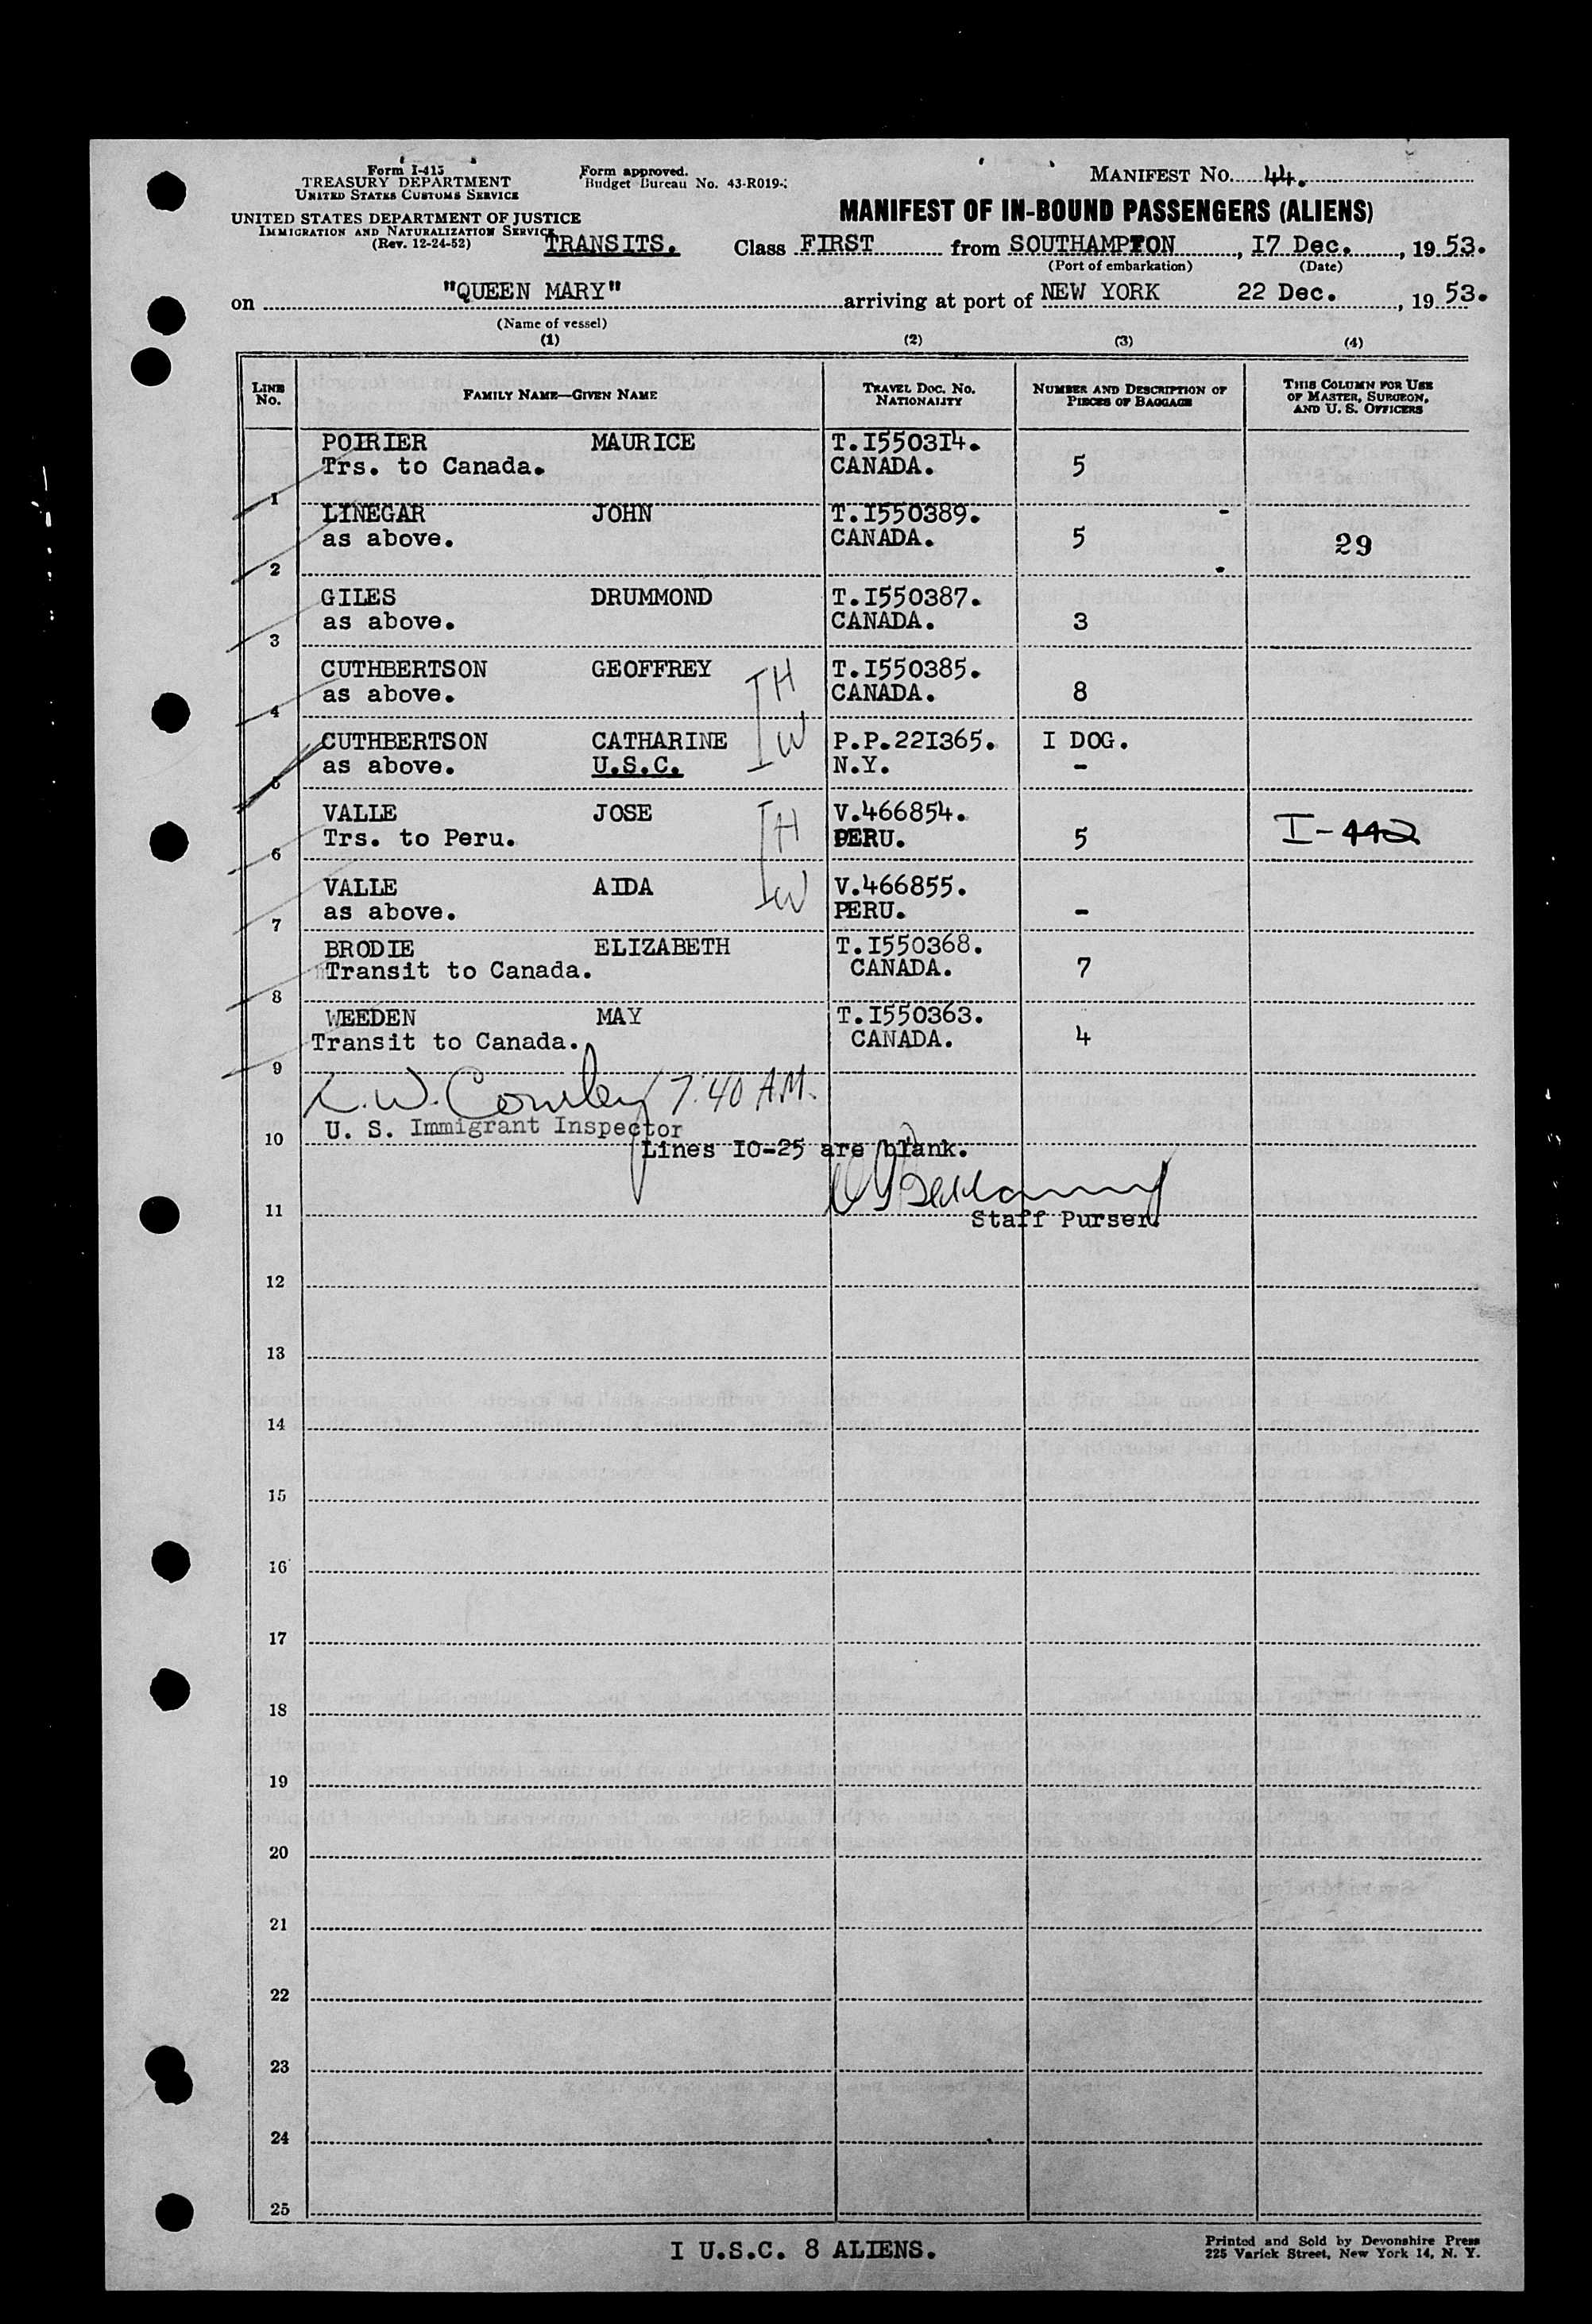 Form I-415
TREASURY DEPARTMENT
UNITED STATES CUSTOMS SERVICE
UNITED STATES DEPARTMENT OF JUSTICE
IMMIGRATION AND NATURALIZATION SERVICE
(Rev. 12-24-52)
Form approved.
Budget Bureau No. 43-R019-
MANIFEST NO. 44.
MANIFEST OF IN-BOUND PASSENGERS (ALIENS)
TRANSITS. Class FIRST from SOUTHAMPTON, I7 Dec., 1953.
(Port of embarkation) (Date)
on "QUEEN MARY" arriving at port of NEW YORK 22 Dec., 1953.
(Name of vessel)
(1) (2) (3) (4)
LINE NO. FAMILY NAME—GIVEN NAME TRAVEL DOC. NO. NATIONALITY NUMBER AND DESCRIPTION OF PIECES OF BAGGAGE THIS COLUMN FOR USE OF MASTER, SURGEON, AND U. S. OFFICERS
POIRIER MAURICE T.I5503I4.
1 Trs. to Canada. CANADA. 5
LINEGAR JOHN T.I550389.
2 as above. CANADA. 5 29
GILES DRUMMOND T.I550387.
3 as above. CANADA. 3
CUTHBERTSON GEOFFREY H T.I550385.
4 as above. CANADA. 8
CUTHBERTSON CATHARINE W P.P.22I365. I DOG.
5 as above. U.S.C. N.Y. -
VALLE JOSE H V.466854.
6 Trs. to Peru. PERU. 5 I-442
VALLE AIDA W V.466855.
7 as above. PERU. -
BRODIE ELIZABETH T.I550368.
8 Transit to Canada. CANADA. 7
WEEDEN MAY T.I550363.
9 Transit to Canada. CANADA. 4
7:40 A.M.
U. S. Immigrant Inspector
10 Lines IO-25 are blank.
11 Staff Purser.
12
13
14
15
16
17
18
19
20
21
22
23
24
25
I U.S.C. 8 ALIENS.
Printed and Sold by Devonshire Press
225 Varick Street, New York 14, N. Y.